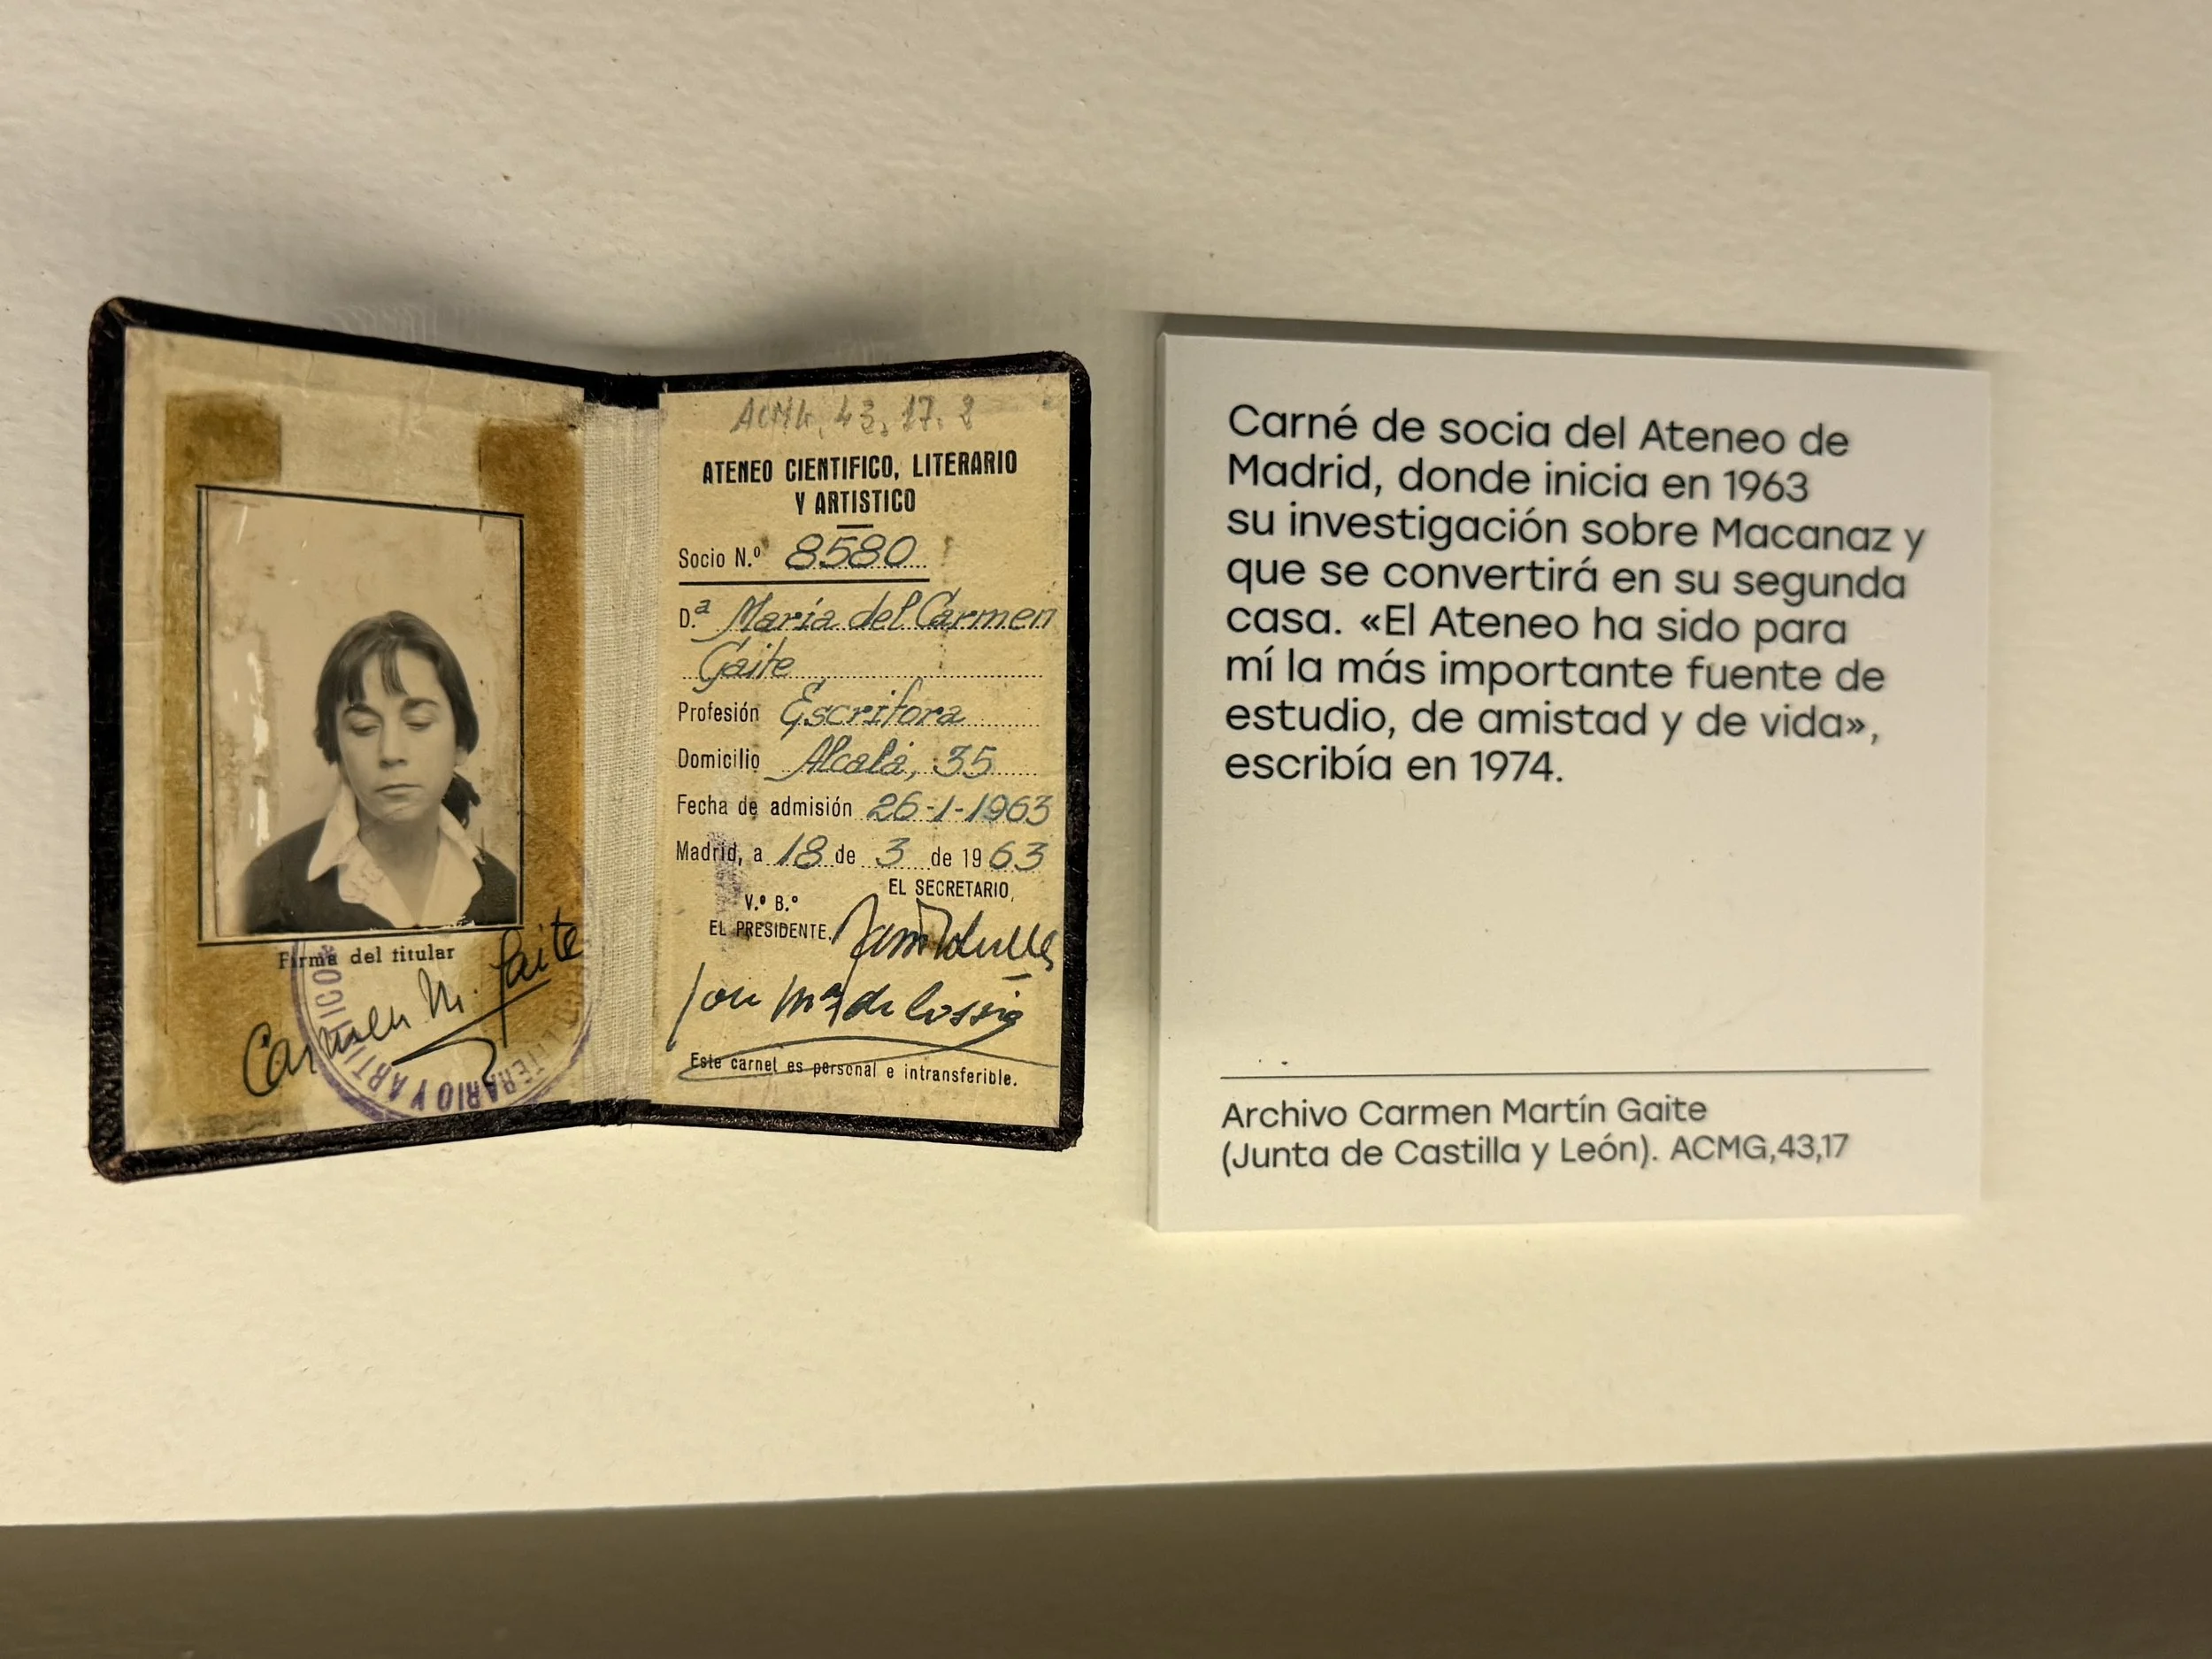 Firma del titular
Carmen M. Gaite
LITERARIO Y ARTISTICO
ACMG, 43, 17. 2
ATENEO CIENTIFICO, LITERARIO
Y ARTISTICO
Socio N.º 8580
D.ª María del Carmen
Gaite
Profesión Escritora
Domicilio Alcalá, 35
Fecha de admisión 26-1-1963
Madrid, a 18 de 3 de 1963
EL SECRETARIO,
V.º B.º
EL PRESIDENTE,
José Mª de Cossío
Este carnet es personal e intransferible.
Carné de socia del Ateneo de
Madrid, donde inicia en 1963
su investigación sobre Macanaz y
que se convertirá en su segunda
casa. «El Ateneo ha sido para
mí la más importante fuente de
estudio, de amistad y de vida»,
escribía en 1974.
Archivo Carmen Martín Gaite
(Junta de Castilla y León). ACMG,43,17